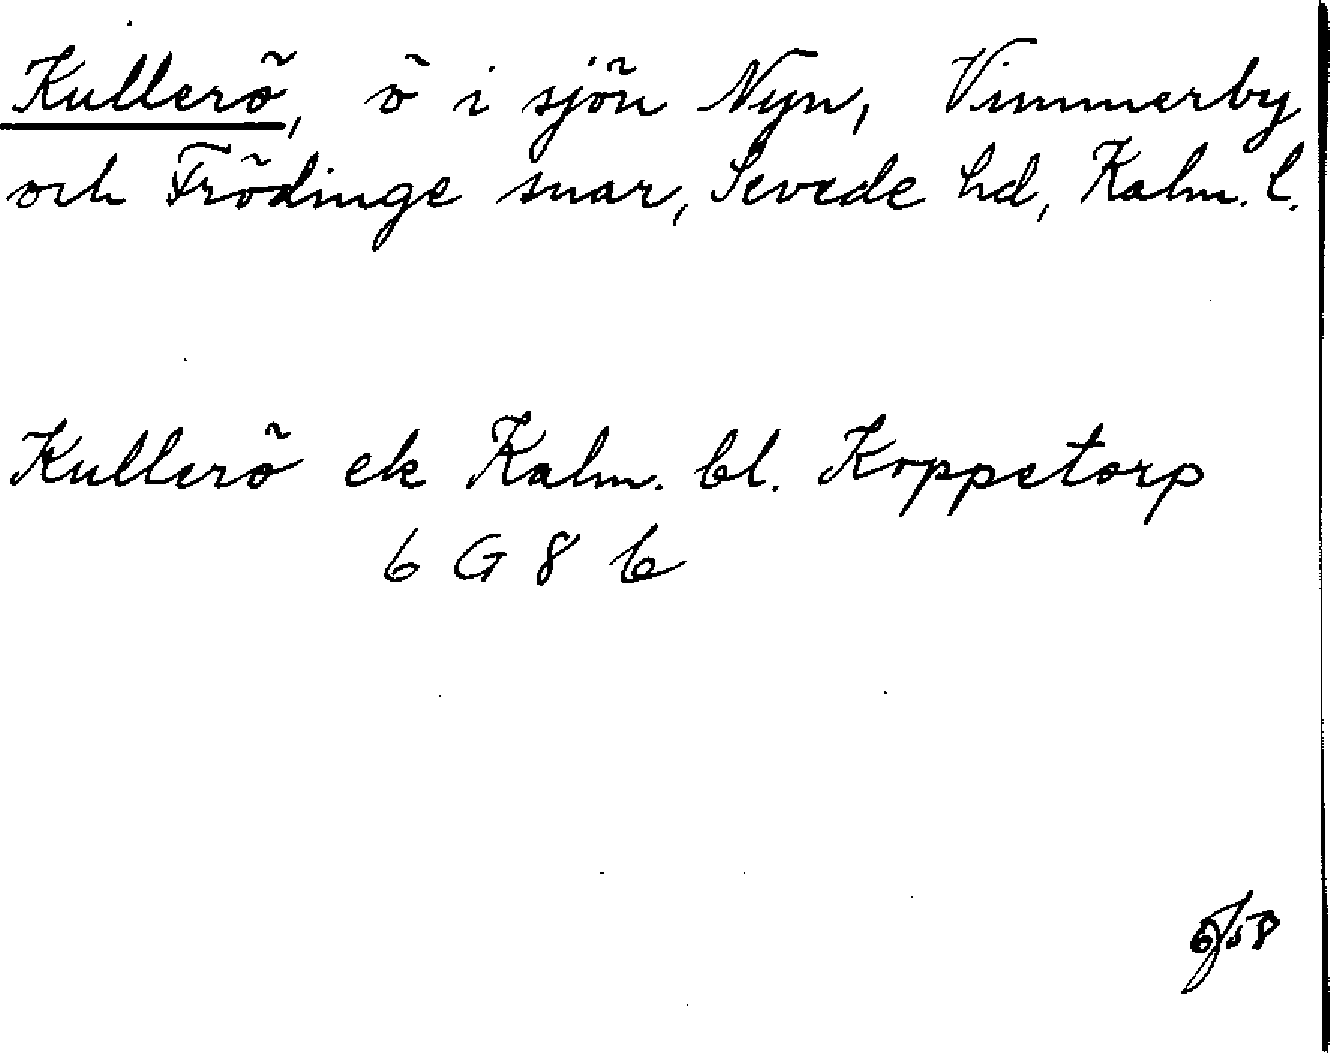 Kullerö, ö i sjön Nyn, Vimmerby
och Frödinge snar, Sevede hd, Kalm. l.
Kullerö ek Kalm. bl. Koppetorp
6 G 8 b